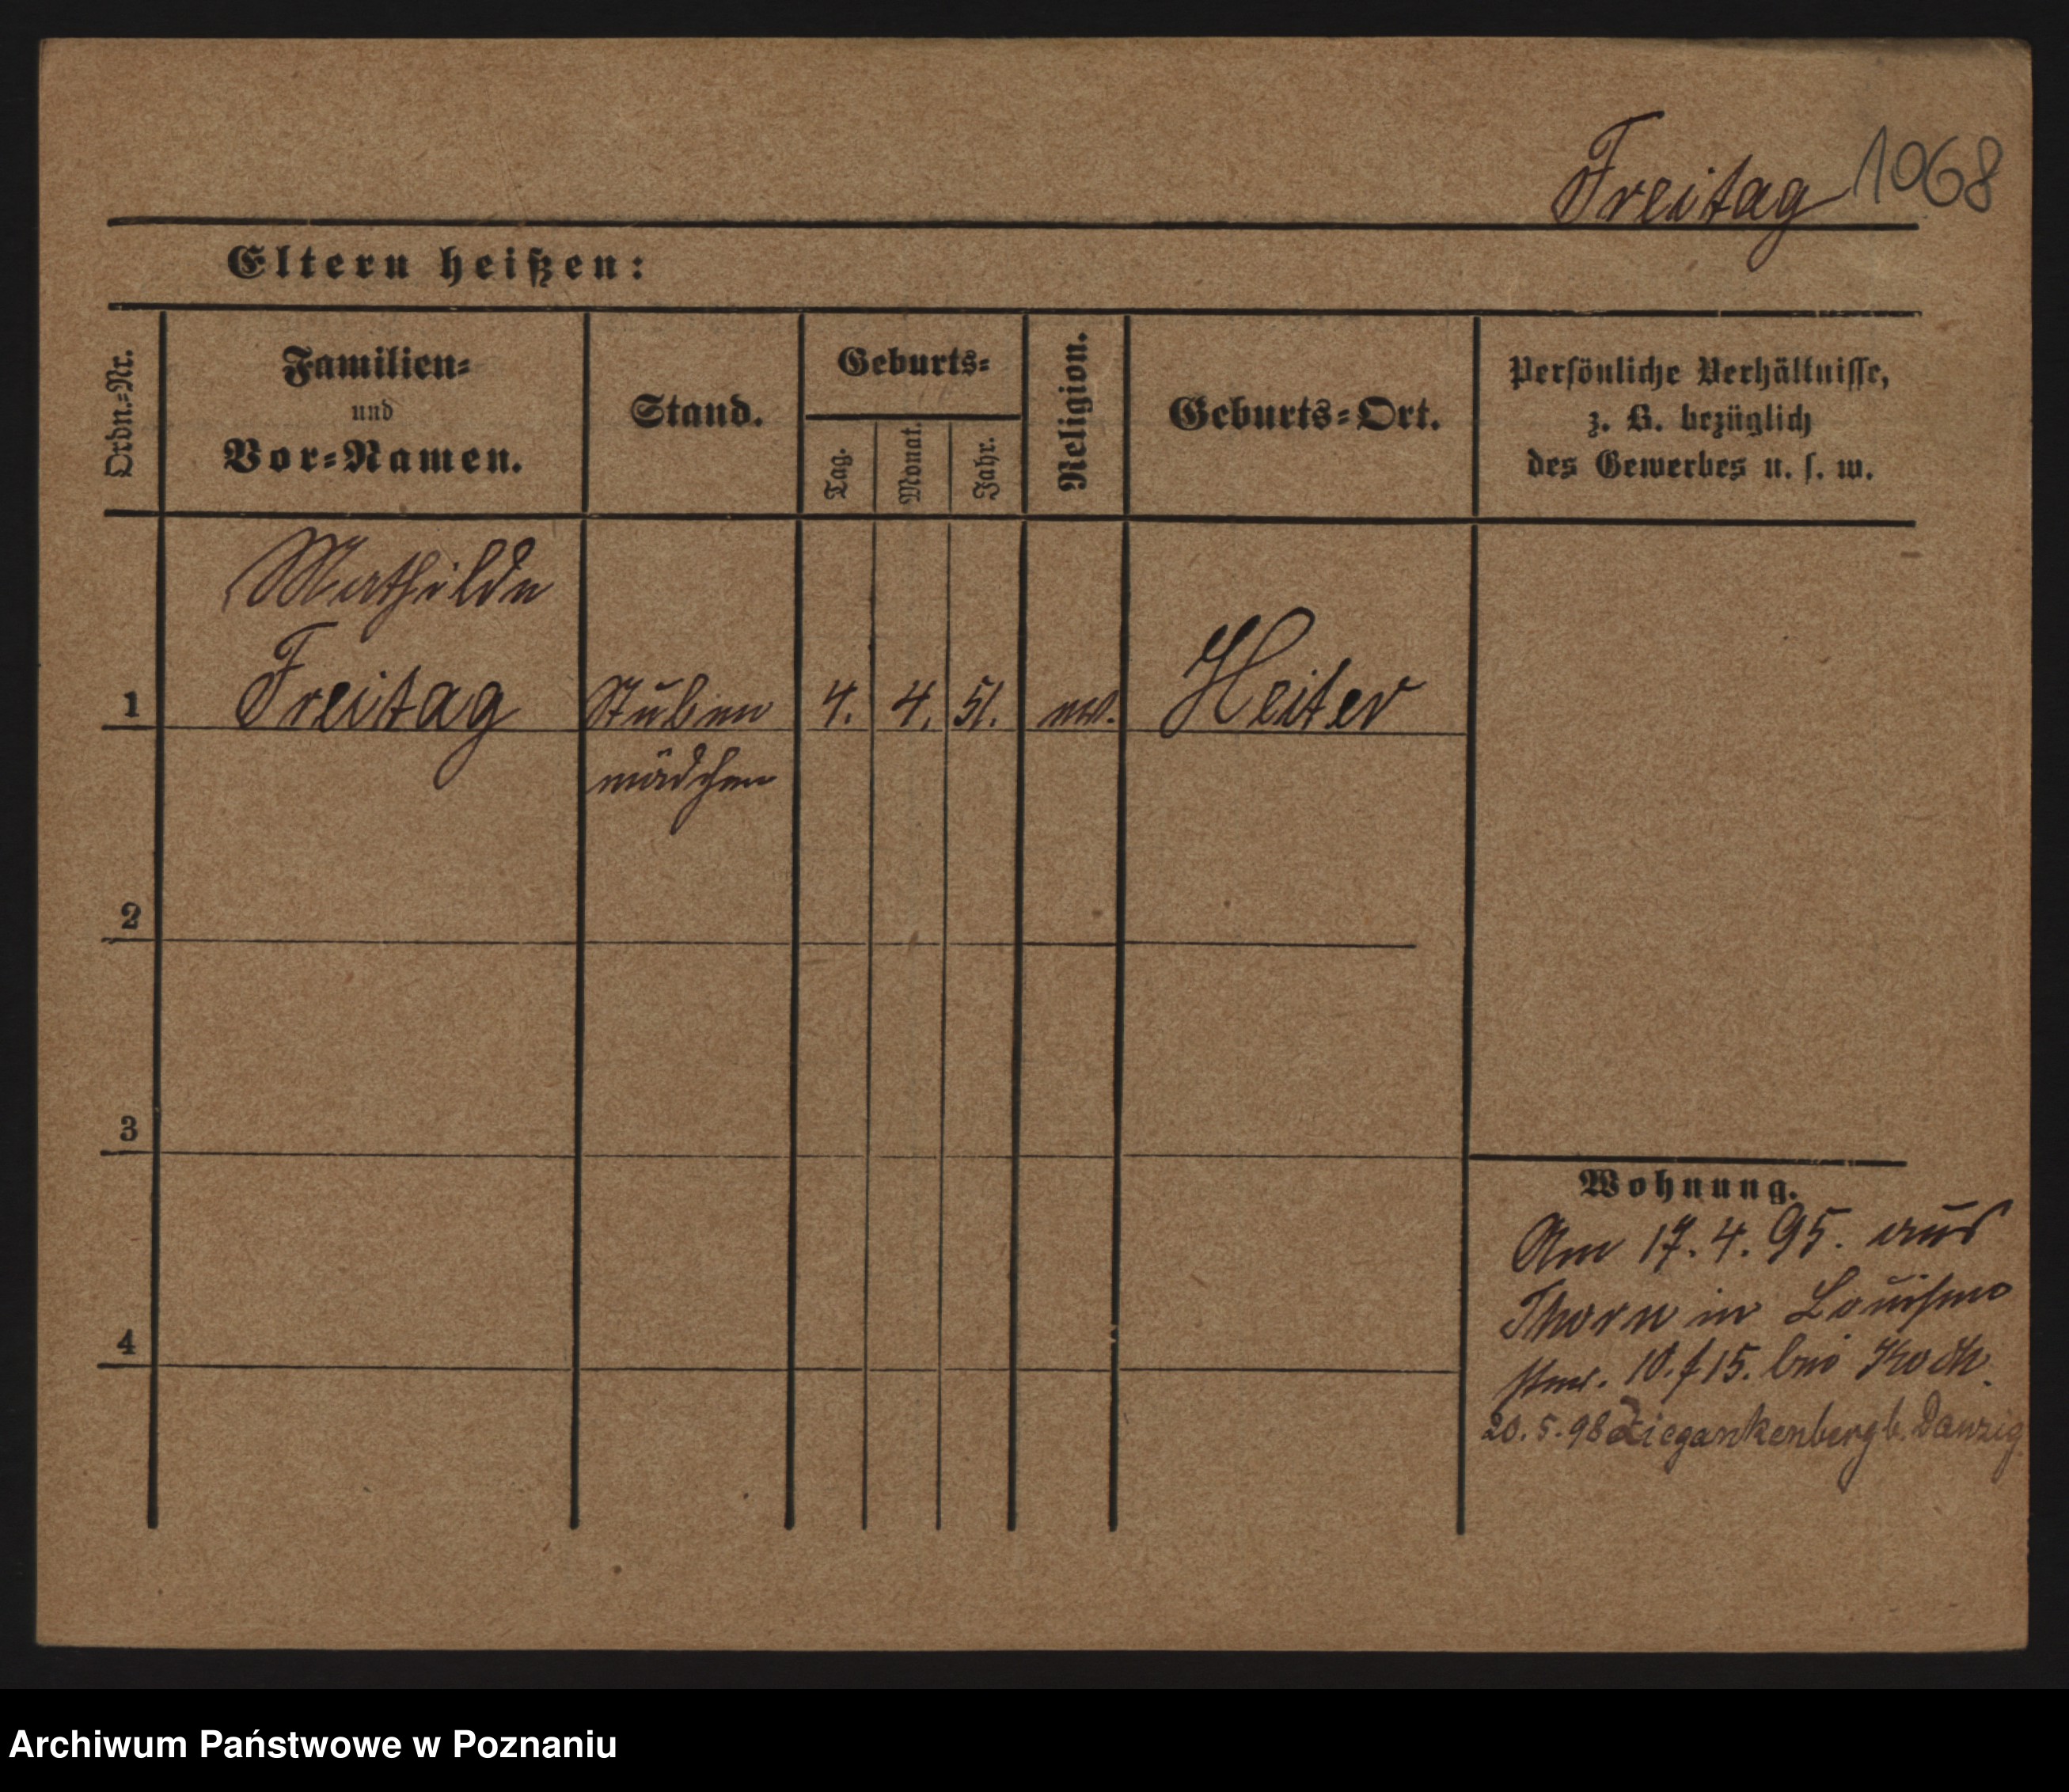 Freitag 1068
Eltern heißen:
Ordn.-Nr.
Familien-
und
Vor-Namen.
Stand.
Geburts-
Tag.
Monat.
Jahr.
Religion.
Geburts-Ort.
Persönliche Verhältnisse,
z. B. bezüglich
des Gewerbes u. s. w.
Mathilde
1 Freitag Stuben 4. 4. 51. ev. Heiter
mädchen
2
3
Wohnung.
Am 17.4.95. aus
Thorn in Louisen
4
str. 15. bei Koch.
20.5.98 Ziegankenberg b. Danzig
Archiwum Państwowe w Poznaniu